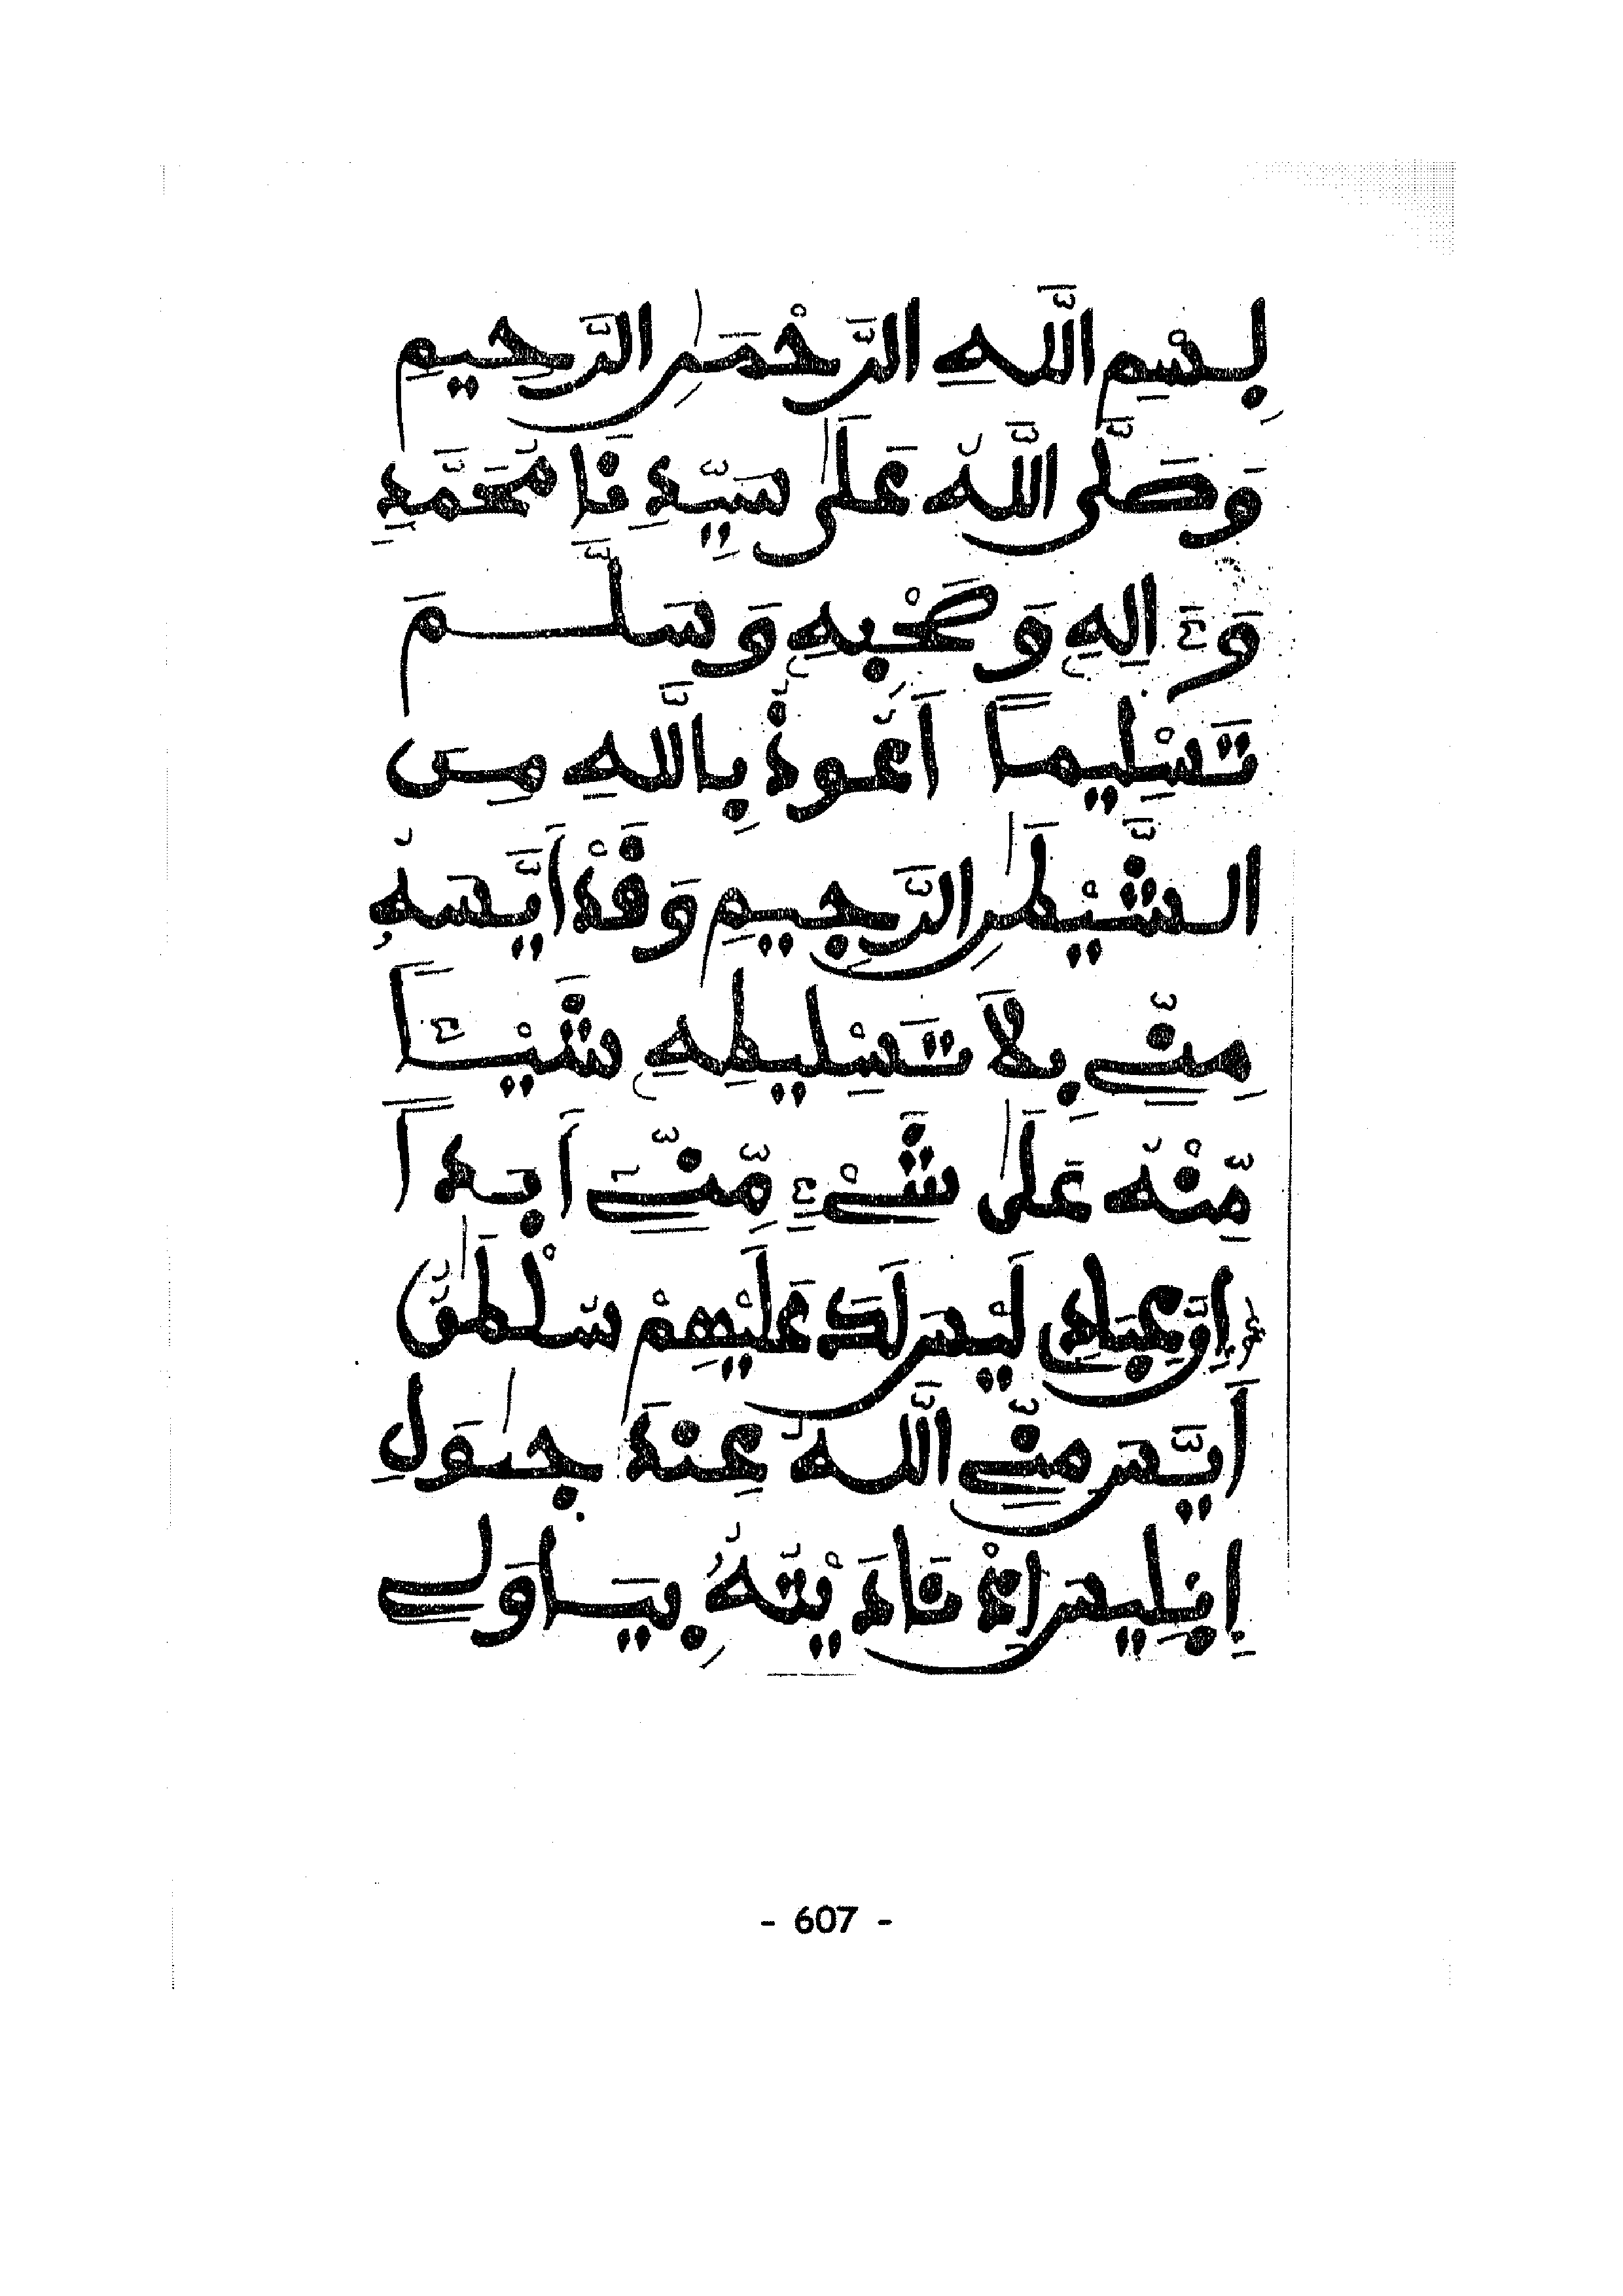 بِسْمِ اللَّهِ الرَّحْمَٰنِ الرَّحِيمِ
وَصَلَّى اللَّهُ عَلَىٰ سَيِّدِنَا مُحَمَّدٍ
وَءَالِهِ وَصَحْبِهِ وَسَلَّمَ
تَسْلِيمًا أَعُوذُ بِاللَّهِ مِنَ
الشَّيْطَٰنِ الرَّجِيمِ وَقَدْ أَيَّسَهُ
مِنِّي بِلَا تَسْلِيطِهِ شَيْـًٔا
مِّنْهُ عَلَىٰ شَيْءٍ مِّنِّي أَبَدًا
إِنَّ عِبَادِي لَيْسَ لَكَ عَلَيْهِمْ سُلْطَٰنٌ
أَيَّسَ مِنِّي اللَّهُ عِنْدَ جَوَلِ
إِبْلِيسَ إِذْ نَادَيْتُهُ بِيَاوَلِي
- 607 -